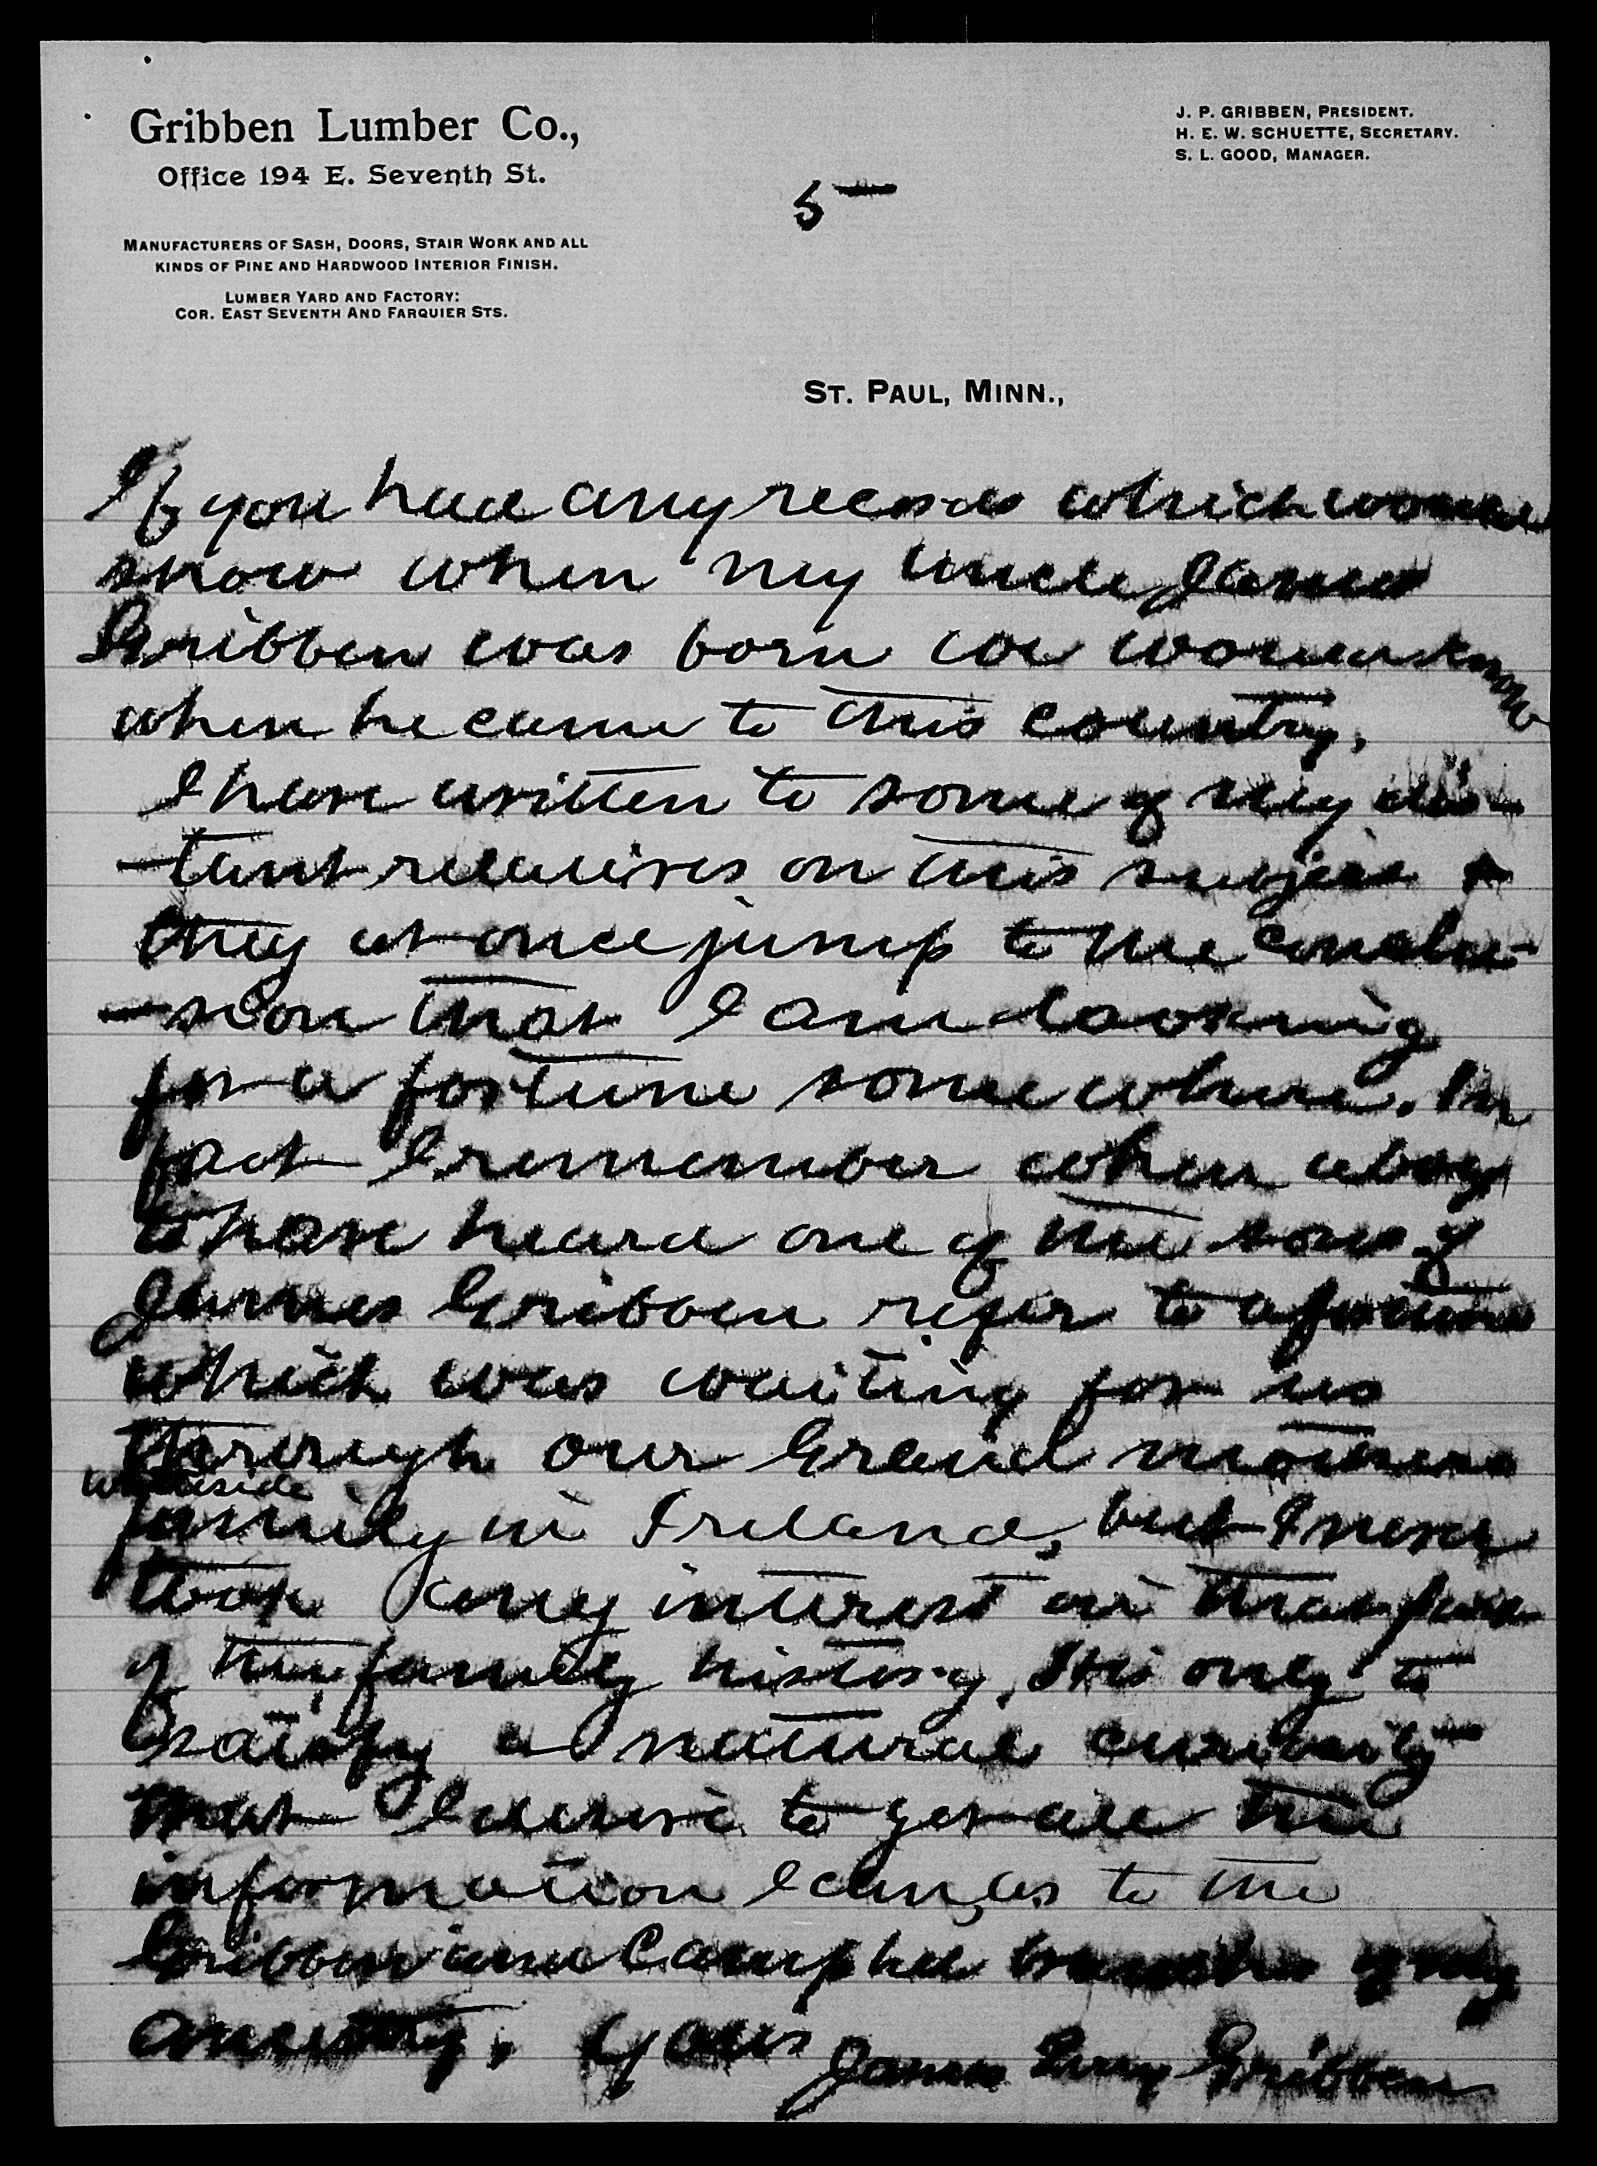 Gribben Lumber Co.,
Office 194 E. Seventh St.
MANUFACTURERS OF SASH, DOORS, STAIR WORK AND ALL
KINDS OF PINE AND HARDWOOD INTERIOR FINISH.
LUMBER YARD AND FACTORY:
COR. EAST SEVENTH AND FARQUIER STS.
J. P. GRIBBEN, PRESIDENT.
H. E. W. SCHUETTE, SECRETARY.
S. L. GOOD, MANAGER.
5—
ST. PAUL, MINN.,
If you had any records which would
show when my uncle James
Gribben was born we would know
when he came to this country.
I have written to some of my dis-
-tant relatives on this subject &
they at once jump to the conclu-
-sion that I am looking
for a fortune somewhere. In
fact I remember when a boy
to have heard one of the sons of
James Gribben refer to a fortune
which was waiting for us
through our Grand mothers
Whiteside
family in Ireland, but I never
took any interest in that part
of the family history. It is only to
satisfy a natural curiosity
that I desire to get all the
information I can, as to the
Gribben and Campbell branches of my
ancestry. Yours
James Perry Gribben